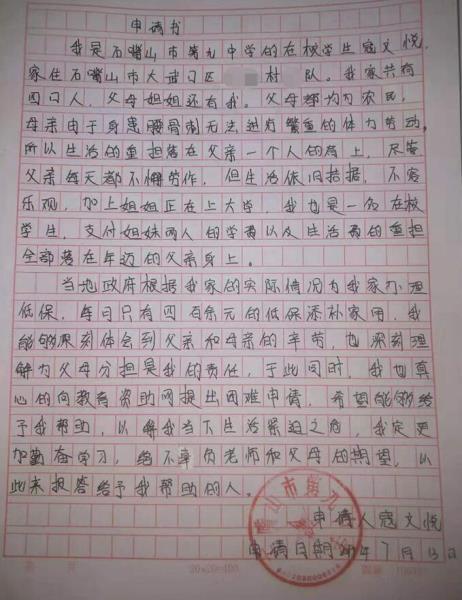 申请书
我是石嘴山市第九中学的在校学生寇文悦,
家住石嘴山市大武口区 村 队。我家共有
四口人,父母姐姐还有我。父母都均为农民,
母亲由于身患腰骨刺无法进行繁重的体力劳动,
所以生活的重担落在父亲一个人的肩上,尽管
父亲每天都不懈劳作,但生活依旧拮据,不容
乐观,加上姐姐正在上大学,我也是一名在校
学生,支付姐妹两人的学费以及生活费的重担
全部落在年迈的父亲身上。
当地政府根据我家的实际情况为我家办理
低保,每月只有四百余元的低保添补家用,我
能够深刻体会到父亲和母亲的辛劳,也深刻理
解为父母分担是我的责任,于此同时,我也真
心的向教育资助网提出困难申请,希望能够给
予我帮助,以解我当下生活紧迫之危,我定更
加勤奋学习,给不辜负老师和父母的期望,以
此来报答给予我帮助的人。
申请人寇文悦
申请日期 年7月13日
20×20=400